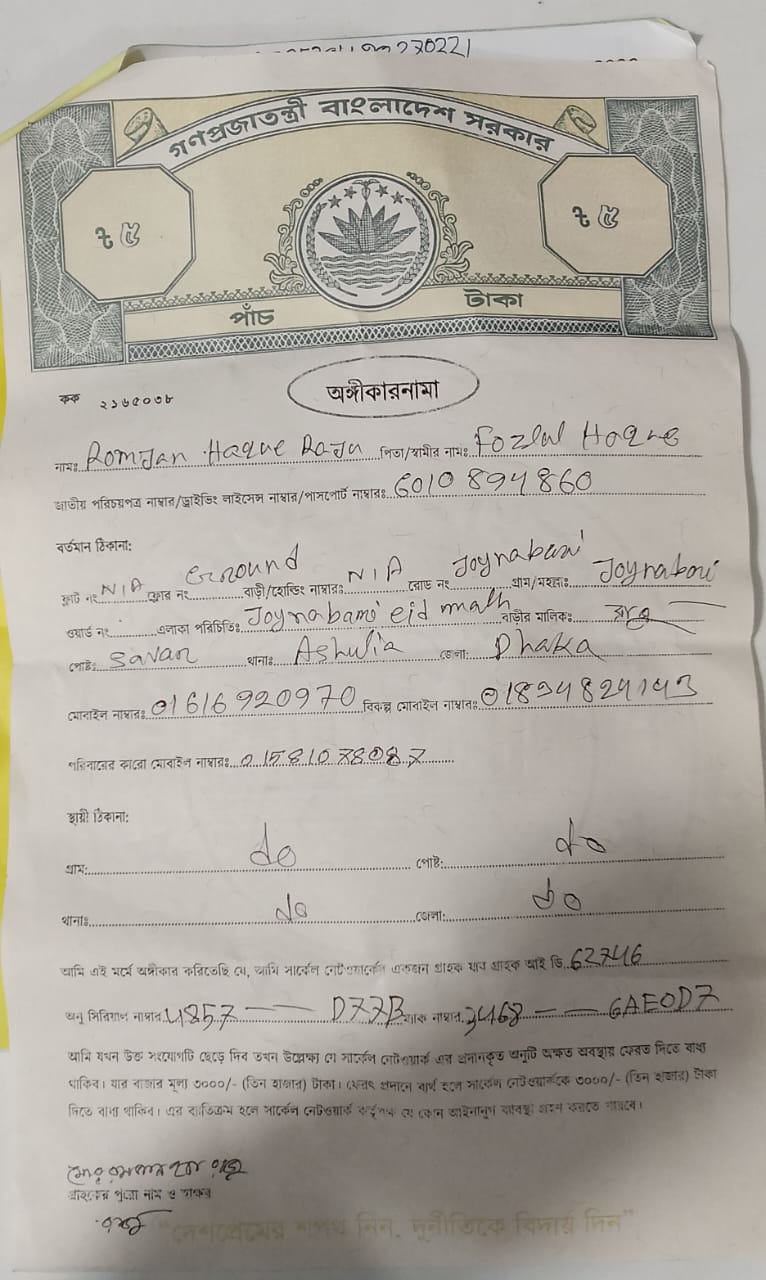 270221
গণপ্রজাতন্ত্রী বাংলাদেশ সরকার
৳ ৫
৳ ৫
পাঁচ টাকা
কক ২১৬৫০৩৮
অঙ্গীকারনামা
নামঃ Romjan Haque Raju পিতা/স্বামীর নামঃ Fozlul Haque
জাতীয় পরিচয়পত্র নাম্বার/ড্রাইভিং লাইসেন্স নাম্বার/পাসপোর্ট নাম্বারঃ 6010894860
বর্তমান ঠিকানা:
ফ্লাট নং N/A ফ্লোর নং Ground বাড়ী/হোল্ডিং নাম্বারঃ N/A রোড নং Joynabari গ্রাম/মহল্লাঃ Joynabari
ওয়ার্ড নং এলাকা পরিচিতিঃ Joynabari eid math বাড়ীর মালিকঃ
পোষ্টঃ Savar থানাঃ Ashulia জেলা: Dhaka
মোবাইল নাম্বারঃ 01616920970 বিকল্প মোবাইল নাম্বারঃ 01894824143
পরিবারের কারো মোবাইল নাম্বারঃ 01581078087
স্থায়ী ঠিকানা:
গ্রাম: do পোষ্ট: do
থানাঃ do জেলা: do
আমি এই মর্মে অঙ্গীকার করিতেছি যে, আমি সার্কেল নেটওয়ার্কের একজন গ্রাহক যার গ্রাহক আই ডি. 62746
অনু সিরিয়াল নাম্বার 4857 —— D77B ম্যাক নাম্বার 3468 —— 6AE0D7
আমি যখন উক্ত সংযোগটি ছেড়ে দিব তখন উল্লেক্ষ্য যে সার্কেল নেটওয়ার্ক এর প্রদানকৃত অনুটি অক্ষত অবস্থায় ফেরত দিতে বাধ্য
থাকিব। যার বাজার মূল্য ৩০০০/- (তিন হাজার) টাকা। ফেরৎ প্রদানে ব্যর্থ হলে সার্কেল নেটওয়ার্ককে ৩০০০/- (তিন হাজার) টাকা
দিতে বাধ্য থাকিব। এর ব্যতিক্রম হলে সার্কেল নেটওয়ার্ক কর্তৃপক্ষ যে কোন আইনানুগ ব্যবস্থা গ্রহন করতে পারবে।
গ্রাহকের পুরো নাম ও স্বাক্ষর
"দেশপ্রেমের শপথ নিন, দুর্নীতিকে বিদায় দিন"